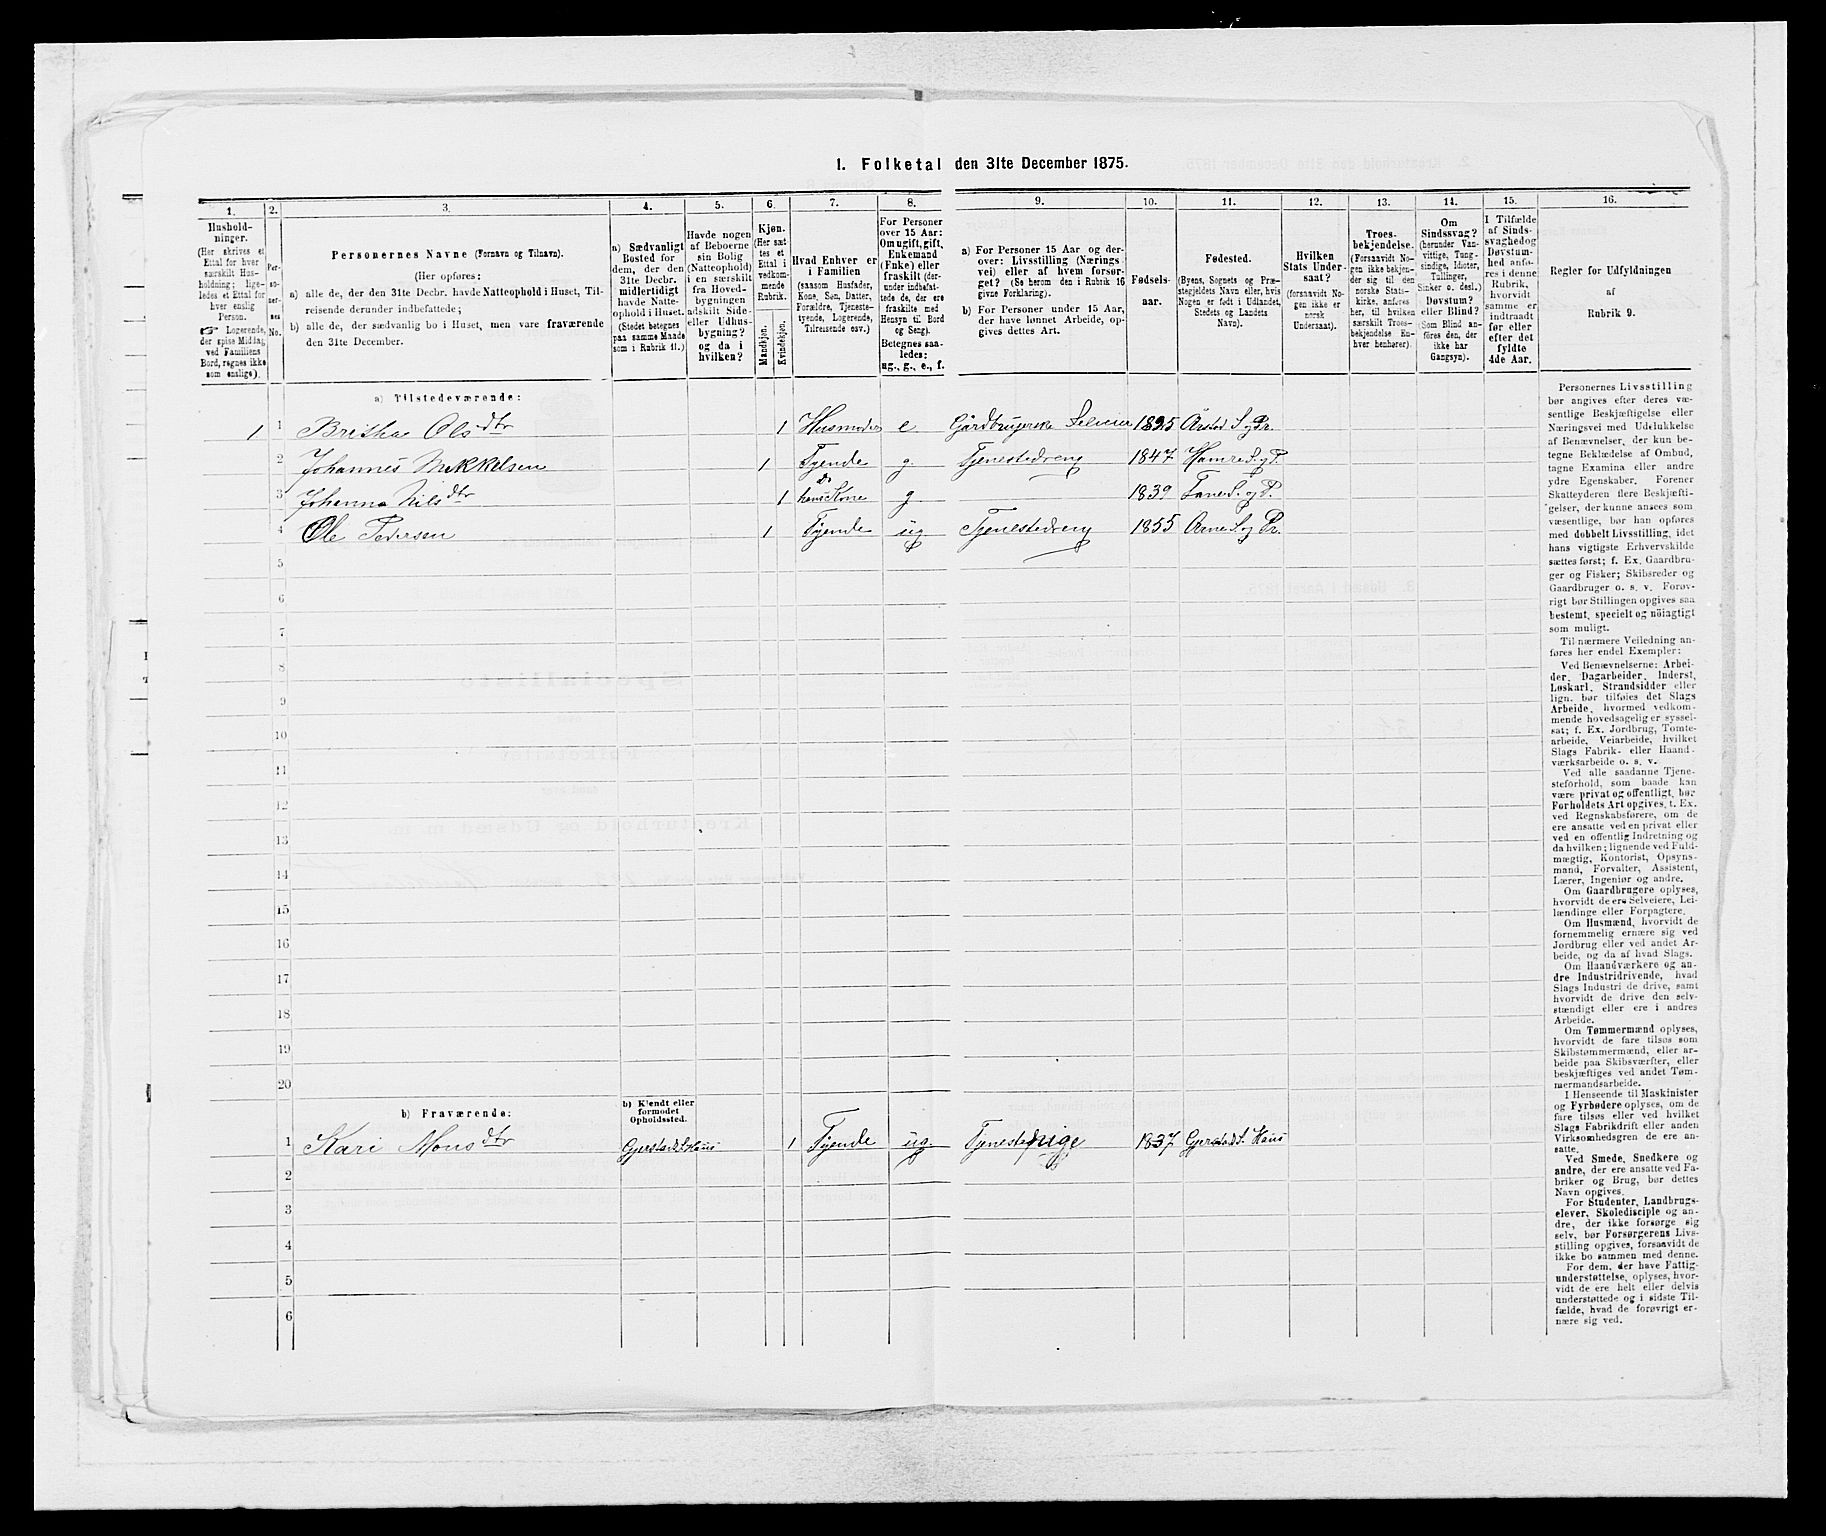 1. Folketal den 31te December 1875.
1. 2. 3. 4. 5. 6. 7. 8. 9. 10. 11. 12. 13. 14. 15. 16.
Hushold-
ninger.
(Her skrives et
Ettal for hver
særskilt Hus-
holdning; lige-
ledes et Ettal for
hver enslig
Person.
☞ Logerende,
der spise Middag
ved Familiens
Bord, regnes ikke
som enslige).
Per-
so-
ner-
nes
No.
Personernes Navne (Fornavn og Tilnavn).
(Her opføres:
a) alle de, der den 31te Decbr. havde Natteophold i Huset, Til-
reisende derunder indbefattede;
b) alle de, der sædvanlig bo i Huset, men vare fraværende
den 31te December.
a) Sædvanligt
Bosted for
dem, der den
31te Decbr.
midlertidigt
havde Natte-
ophold i Huset.
(Stedet betegnes
paa samme Maade
som i Rubrik 11.)
Havde nogen
af Beboerne
sin Bolig
(Natteophold)
i en særskilt
fra Hoved-
bygningen
adskilt Side-
eller Udhus-
bygning?
og da i
hvilken?
Kjøn.
(Her sæt-
tes et
Ettal i
vedkom-
mende
Rubrik.
Mandkjøn.
Kvindekjøn.
Hvad Enhver er
i Familien
(saasom Husfader,
Kone, Søn, Datter,
Forældre, Tjeneste-
tyende, Logerende,
Tilreisende osv.)
For Personer
over 15 Aar:
Om ugift, gift,
Enkemand
(Enke) eller
fraskilt (der-
under indbefat-
tede de, der ere
fraskilte med
Hensyn til Bord
og Seng).
Betegnes saa-
ledes:
ug., g., e., f.
a) For Personer 15 Aar og der-
over: Livsstilling (Nærings-
vei) eller af hvem forsør-
get? (Se herom den i Rubrik 16
givne Forklaring).
b) For Personer under 15 Aar,
der have lønnet Arbeide, op-
gives dettes Art.
Fødsels-
aar.
Fødested.
(Byens, Sognets og Præ-
stegjeldets Navn eller, hvis
Nogen er født i Udlandet,
Stedets og Landets
Navn).
Hvilken
Stats Under-
saat?
(forsaavidt No-
gen ikke er
norsk
Undersaat).
Troes-
bekjendelse.
(Forsaavidt No-
gen ikke bekjen-
der sig til den
norske Stats-
kirke, anføres
her, til hvilken
særskilt Troes-
bekjendelse En-
hver henhører).
Om
Sindssvag?
(herunder Van-
vittige, Tung-
sindige, Idioter,
Tullinger,
Sinker o. desl.)
Døvstum?
eller Blind?
(Som Blind an-
føres den, der
ikke har
Gangsyn).
I Tilfælde
af Sinds-
svaghed og
Døvstum-
hed anfø-
res i denne
Rubrik,
hvorvidt
samme er
indtraadt
før eller
efter det
fyldte
4de Aar.
Regler for Udfyldningen
af
Rubrik 9.
a) Tilstedeværende:
1 1 Brithe Olsdtr 1 Husmoder e Gårdbrugerske Seleier 1825 Årstad S. og Pr.
2 Johannes Mikkelsen 1 Tyende g. Tjenestedreng 1847 Hamre S. og P.
3 Johanna Nilsdtr 1 hans Kone g 1839 Fane S. og P.
4 Ole Pedersen 1 Tyende ug. Tjenestedreng 1855 Arne S. og Pr.
5
6
7
8
9
10
11
12
13
14
15
16
17
18
19
20
b) Fraværende:
b) Kjendt eller
formodet
Opholdssted.
1 Kari Monsdtr Gjerstad S. Haus 1 Tyende ug. Tjenestepige 1837 Gjerstad S. Haus
2
3
4
5
6
Personernes Livsstilling
bør angives efter deres væ-
sentlige Beskjæftigelse eller
Næringsvei med Udelukkelse
af Benævnelser, der kun be-
tegne Beklædelse af Ombud,
tagne Examina eller andre
ydre Egenskaber. Forener
Skatteyderen flere Beskjæfti-
gelser, der kunne ansees som
væsentlige, bør han opføres
med dobbelt Livsstilling, idet
hans vigtigste Erhvervskilde
sættes først; f. Ex. Gaardbru-
ger og Fisker; Skibsreder og
Gaardbruger o. s. v. Forøv-
rigt bør Stillingen opgives saa
bestemt, specielt og nøiagtigt
som muligt.
Til nærmere Veiledning an-
føres her endel Exempler:
Ved Benævnelserne: Arbei-
der, Dagarbeider, Inderst,
Løskarl, Strandsidder eller
lign. bør tilføies det Slags
Arbeide, hvormed vedkom-
mende hovedsagelig er syssel-
sat; f. Ex. Jordbrug, Tomte-
arbeide, Veiarbeide, hvilket
Slags Fabrik- eller Haand-
værksarbeide o. s. v.
Ved alle saadanne Tjene-
steforhold, som baade kan
være privat og offentligt, bør
Forholdets Art opgives, t. Ex.
ved Regnskabsførere, om de
ere ansatte ved en privat eller
ved en offentlig Indretning og
da hvilken; lignende ved Fuld-
mægtig, Kontorist, Opsyns-
mand, Forvalter, Assistent,
Lærer, Ingeniør og andre.
Om Gaardbrugere oplyses,
hvorvidt de ere Selveiere, Lei-
lændinge eller Forpagtere.
Om Husmænd, hvorvidt de
fornemmelig ernære sig ved
Jordbrug eller ved andet Ar-
beide, og da af hvad Slags.
Om Haandværkere og an-
dre Industridrivende, hvad
Slags Industri de drive, samt
hvorvidt de drive den selv-
stændigt eller ere i andres
Arbeide.
Om Tømmermænd oplyses,
hvorvidt de fare tilsøs som
Skibstømmermænd, eller ar-
beide paa Skibsværfter, eller
beskjæftiges ved andet Tøm-
mermandsarbeide.
I Henseende til Maskinister
og Fyrbødere oplyses, om de
fare tilsøs eller ved hvilket
Slags Fabrikdrift eller anden
Virksomhedsgren de ere an-
satte.
Ved Smede, Snedkere og
andre, der ere ansatte ved Fa-
briker og Brug, bør dettes
Navn opgives.
For Studenter, Landbrugs-
elever, Skoledisciple og an-
dre, der ikke forsørge sig
selv, bør Forsørgerens Livs-
stilling opgives, forsaavidt de
ikke bo sammen med denne.
For dem, der have Fattig-
understøttelse, oplyses, hvor-
vidt de ere helt eller delvis
understøttede og i sidste Til-
fælde, hvad de forøvrigt er-
nære sig ved.